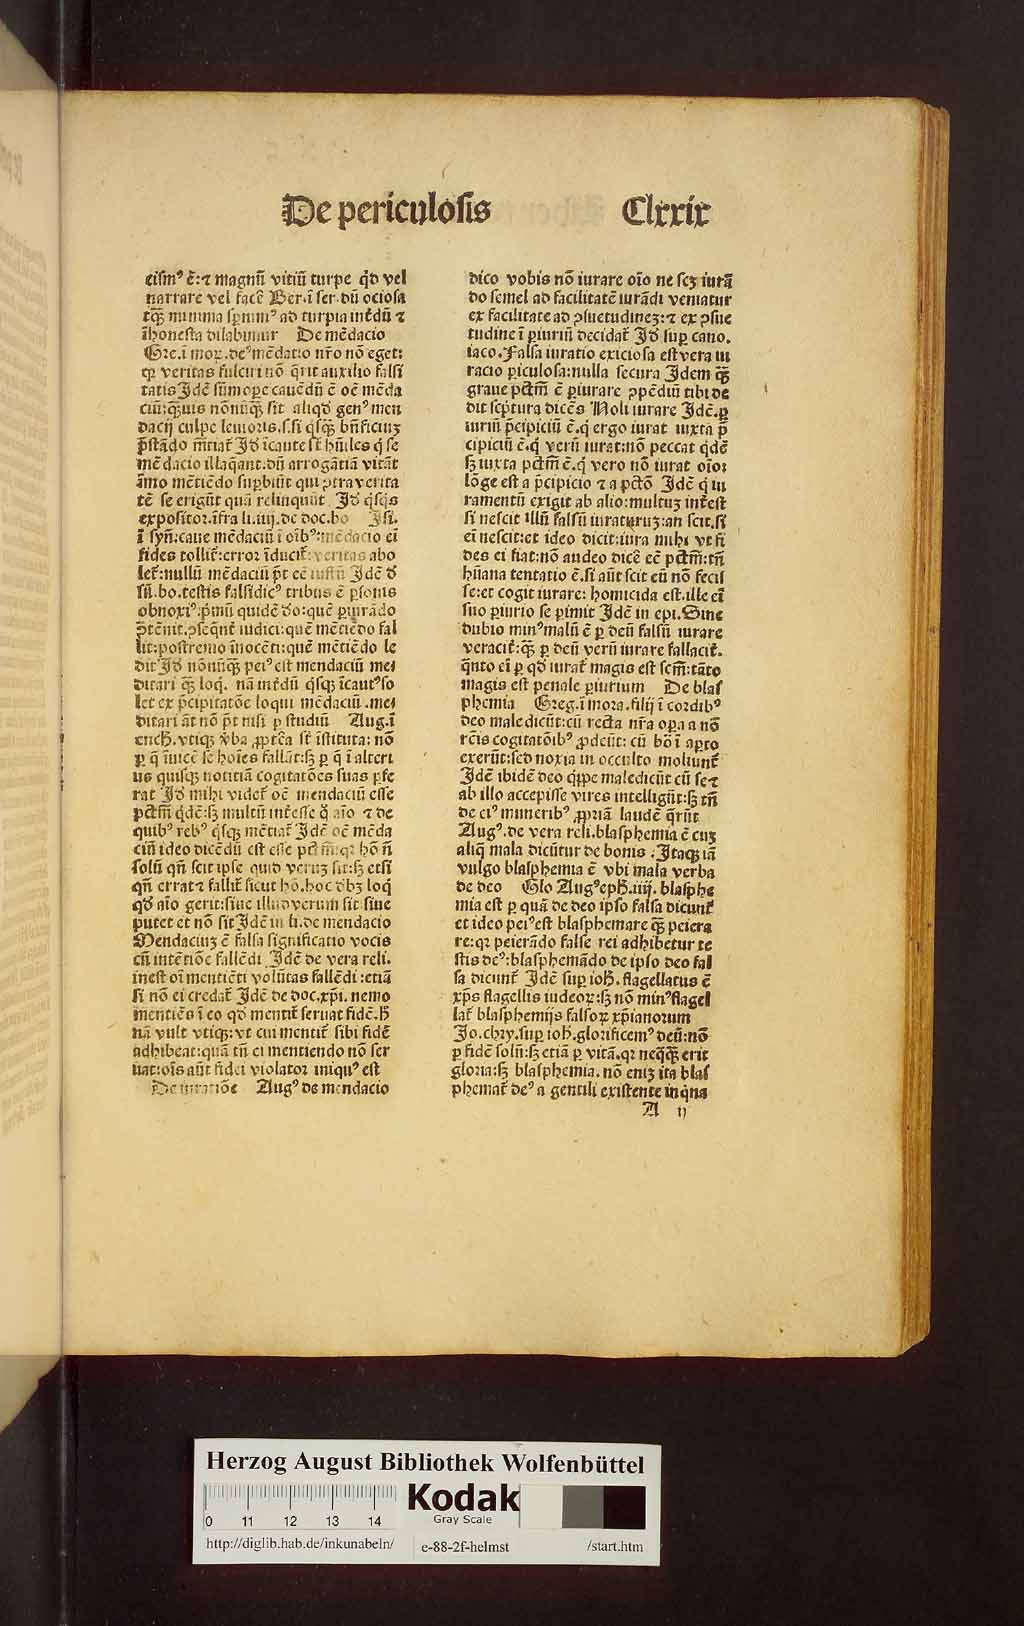 De periculosis Clxxix
eismꝰ ē:⁊ magnū vitiū turpe qd vel
narrare vel facē Ber.ī ser.dū ociosa
minima ad turpia intēdū ⁊
īhonesta dilabimur De mēdacio
Gre.ī mor̄.deꝰ mēdatio nr̄o nō eget:
qꝛ veritas fulciri nō q̄rit auxilio falsi
tatis Idē sūmopere cauēdū ē oē mēda
ciū:q̄uis nōnūqȝ sit aliqd genꝰ men
dacij culpe leuioris.s.si qsqȝ bn̄ficiuȝ
p̄stādo mētiat̄ Id īcaute st̄ hūiles q se
mēdacio illaqant.dū arrogātiā vitāt
āmo mētiēdo supbiūt qui ꝯtra verita
tē se erigūt quā relinquūt Id qsqs
expositor.īfra li.iiij.de doc.bo Isi.
ī syn̄.caue mēdaciū ī oībꝰ:mēdacio ei
fides tollit̄:error īducit̄:veritas abo
let̄:nullū mēdaciū p̄t eē iustū Idē d
sū.bo.testis falsidicꝰ tribus ē psonis
obnoxiꝰ:pmū quidē do:quē piurādo
ꝯtēnit.ꝯseq̄nt̄ iudici:quē mētiēdo fal
lit:postremo īnocēti:quē mētiēdo le
dit Id nōnūqȝ peiꝰ est mendaciū me⸗
ditari qȝ loq. nā intēdū qsqȝ īcautꝰ so
let ex p̄cipitatōe loqui mēdaciū.me⸗
ditari āt nō p̄t nisi p studiū Aug.ī
ench.vtiqȝ vba ꝓptēa st̄ īstituta: nō
p q īuicē se hoīes fallāt:sȝ p q ī alteri
us quisqȝ notitiā cogitatōes suas pfe
rat Id mihi videt̄ oē mendaciū esse
pctm̄ qdē:sȝ multū intēsse q aīo ⁊ de
quibꝰ rebꝰ qsqȝ mētiat̄ Idē oē mēda
ciū ideo dicēdū est esse pctm̄:qꝛ hō n̄
solū qn̄ scit ipse quid veruȝ sit:sȝ etsi
qn̄ errat ⁊ fallit̄ sicut hō.hoc dbȝ loq
qd aīo gerit:siue illud verum sit siue
putet et nō sit Idē in li.de mendacio
Mendaciuȝ ē falsa significatio vocis
cū intētiōe fallēdi Idē de vera reli.
inest oī mentiēti volūtas fallēdi:etiā
si nō ei credat̄ Idē de doc.xp̄i. nemo
mentiēs ī eo qd mentit̄ seruat fidē.h
nā vult vtiqȝ:vt cui mentit̄ sibi fidē
adhibeat:quā tn̄ ei mentiendo nō ser
uat:oīs aūt fidei violator iniquꝰ est
De iuratiōe Augꝰ de mendacio
dico vobis nō iurare oīo ne scȝ iurā
do semel ad facilitatē iurādi veniatur
ex facilitate ad ꝯsuetudineȝ:⁊ ex ꝯsue
tudine ī piuriū decidat̄ Id sup cano.
iaco.Falsa iuratio exiciosa est vera iu
racio piculosa:nulla secura Idem qȝ
graue pctm̄ ē piurare ꝯpēdiū tibi de
dit scptura dicēs Noli iurare Idē.p
iuriū p̄cipiciū ē.q ergo iurat iuxta p̄
cipiciū ē.q verū iurat:nō peccat qdē
sȝ iuxta pctm̄ ē.q vero nō iurat oīo:
lōge est a p̄cipicio ⁊ a pctō Idē q iu
ramentū exigit ab alio:multuȝ intēst
si nescit illū falsū iraturuȝ:an scit.si
ei nescit:et ideo dicit:iura mihi vt fi
des ei fiat:nō audeo dicē eē pctm̄:tn̄
hūana tentatio ē.si aūt scit eū nō fecis
se:et cogit iurare: homicida est.ille ei
suo piurio se pimit Idē in epi.Sine
dubio minꝰ malū ē p deū falsū iurare
veracit̄:qȝ p deū verū iurare fallacit̄.
q̄nto ei p qd iurat̄ magis est scm̄:tāto
magis est penale piurium De blas
phemia Greg.ī mora.filij ī cordibꝰ
deo maledicūt:cū recta nr̄a opa a nō
rc̄is cogitatōibꝰ ꝓdeūt: cū bō ī apto
exerūt:sed noxia in occulto moliunt̄
Idē ibidē deo qppe maledicūt cū se ⁊
ab illo accepisse vires intelligūt:sȝ tn̄
de eiꝰ muneribꝰ ꝓpriā laudē qrūt
Augꝰ.de vera reli.blasphemia ē cuȝ
aliq mala dicūtur de bonis.Itaqȝ iā
vulgo blasphemia ē vbi mala verba
de deo Glo Augꝰ eph.iiij. blasphe
mia est p quā de deo ipso falsa dicunt̄
et ideo peiꝰ est blasphemare qȝ peiera
re:qꝛ peierādo false rei adhibetur te
stis deꝰ:blasphemādo de ipso deo fal
sa dicunt̄ Idē sup ioh. flagellatus ē
xp̄s flagellis iudeoꝝ:sȝ nō minꝰ flagel
lat̄ blasphemijs falsoꝝ xp̄ianorum
Jo.chry.sup ioh.glorificemꝰ deū:nō
p fidē solū:sȝ etiā p vitā.qꝛ neqȝ erit
gloria:sȝ blasphemia. nō eniȝ ita blas
phemat̄ deꝰ a gentili existente inqna
A ij
Herzog August Bibliothek Wolfenbüttel
0 11 12 13 14
Kodak
Gray Scale
http://diglib.hab.de/inkunabeln/ e-88-2f-helmst /start.htm